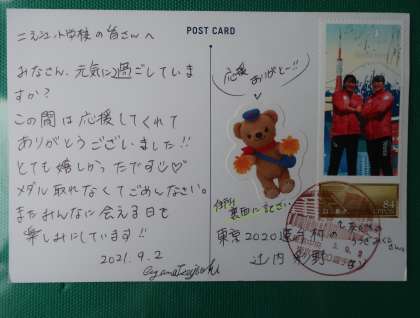 POST CARD
小学校の皆さんへ
みなさん、元気に過ごしていま
すか？
この間は応援してくれて
ありがとうございました!!
とても嬉しかったです♡
メダル取れなくてごめんなさい。
またみんなに会える日を
楽しみにしています!
2021.9.2
応援
ありがと〜!!
裏面に記さい
東京2020選手村の
辻内彩野
84